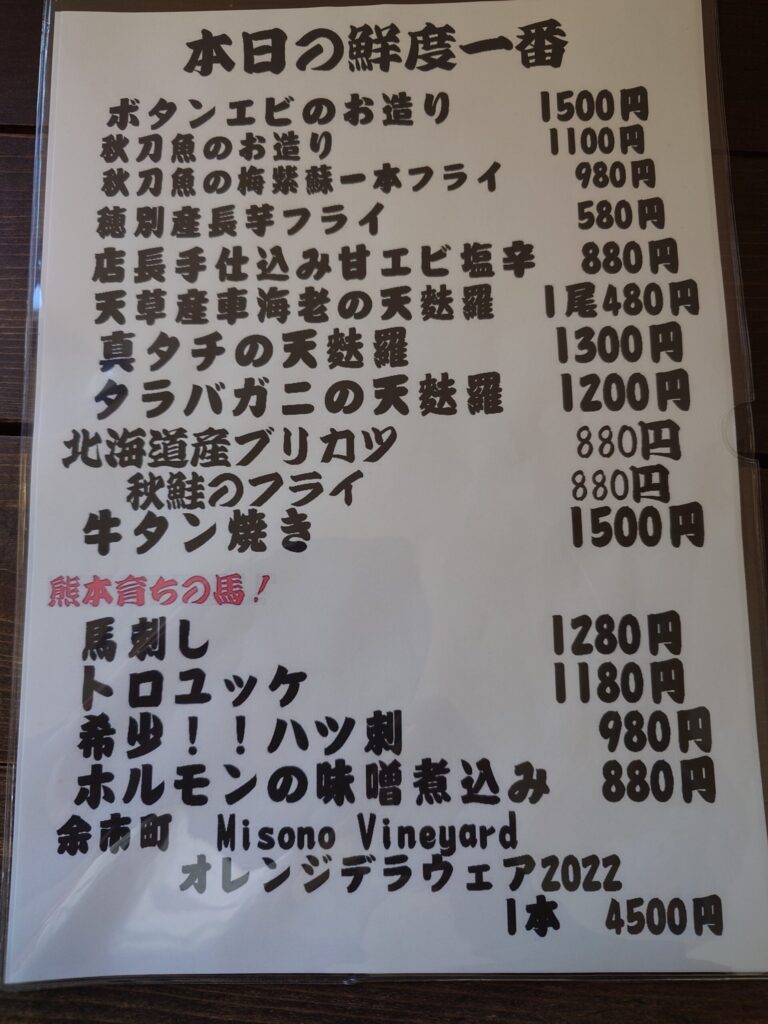 本日の鮮度一番
ボタンエビのお造り 1500円
秋刀魚のお造り 1100円
秋刀魚の梅紫蘇一本フライ 980円
穂別産長芋フライ 580円
店長手仕込み甘エビ塩辛 880円
天草産車海老の天麩羅 1尾480円
真タチの天麩羅 1300円
タラバガニの天麩羅 1200円
北海道産ブリカツ 880円
秋鮭のフライ 880円
牛タン焼き 1500円
熊本育ちの馬！
馬刺し 1280円
トロユッケ 1180円
希少！！ハツ刺 980円
ホルモンの味噌煮込み 880円
余市町 Misono Vineyard
オレンジデラウェア2022
1本 4500円